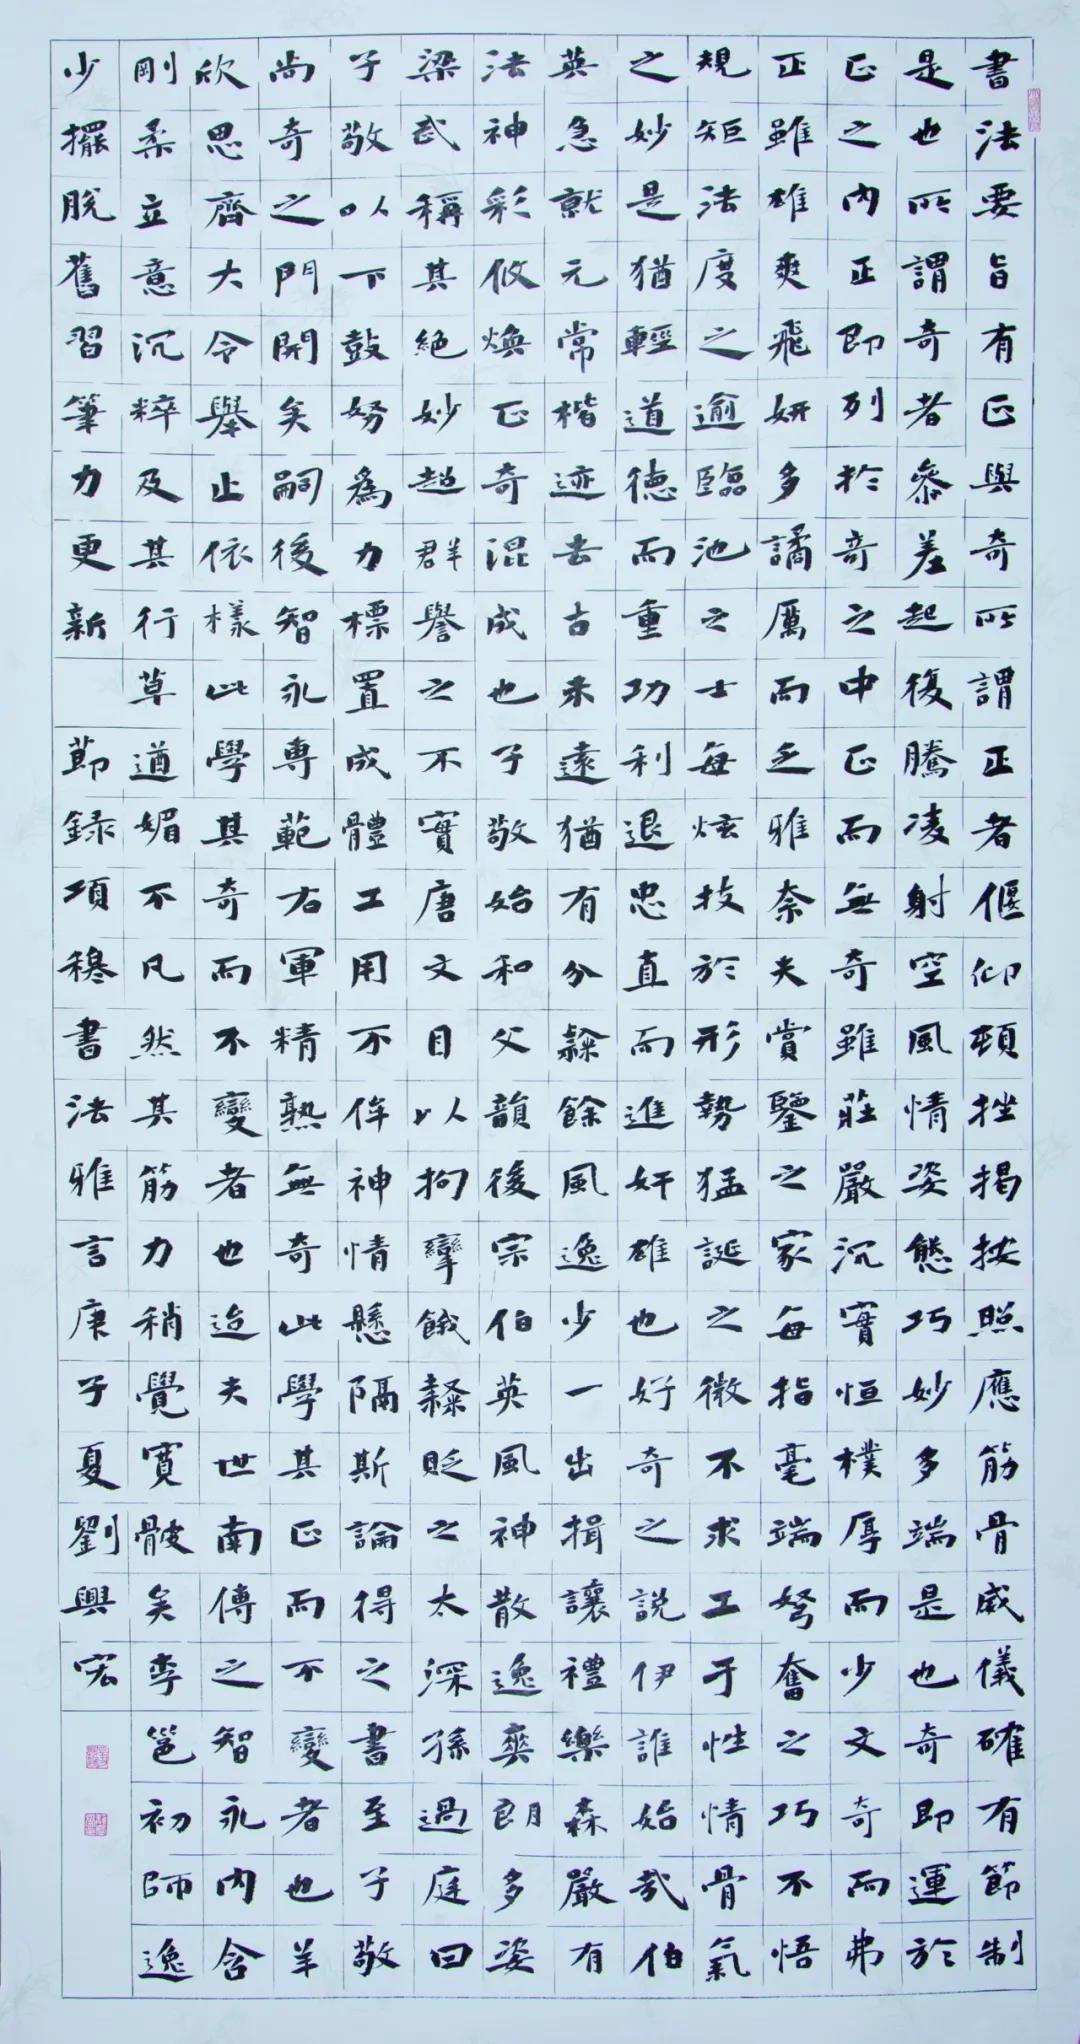 書法要旨有正與奇所謂正者偃仰頓挫揭按照應筋骨威儀確有節制
是也所謂奇者參差起復騰凌射空風情姿態巧妙多端是也奇即運於
正之內正即列於奇之中正而無奇雖莊嚴沉實恒樸厚而少文奇而弗
正雖雄爽飛妍多譎厲而乏雅奈夫賞鑒之家每指毫端弩奮之巧不悟
規矩法度之逾臨池之士每炫技於形勢猛誕之微不求工于性情骨氣
之妙是猶輕道德而重功利退忠直而進奸雄也好奇之說伊誰始哉伯
英急就元常楷迹去古未遠猶有分隸餘風逸少一出揖讓禮樂森嚴有
法神彩攸煥正奇混成也子敬始和父韻後宗伯英風神散逸爽朗多姿
梁武稱其絕妙超群譽之不實唐文目以拘攣餓隸貶之太深孫過庭曰
子敬以下鼓努為力標置成體工用不侔神情懸隔斯論得之書至子敬
尚奇之門開矣嗣後智永專範右軍精熟無奇此學其正而不變者也羊
欣思齊大令舉止依樣此學其奇而不變者也迨夫世南傳之智永內含
剛柔立意沉粹及其行草遒媚不凡然其筋力稍覺寬骳矣李邕初師逸
少擺脫舊習筆力更新 節錄項穆書法雅言庚子夏劉興宏